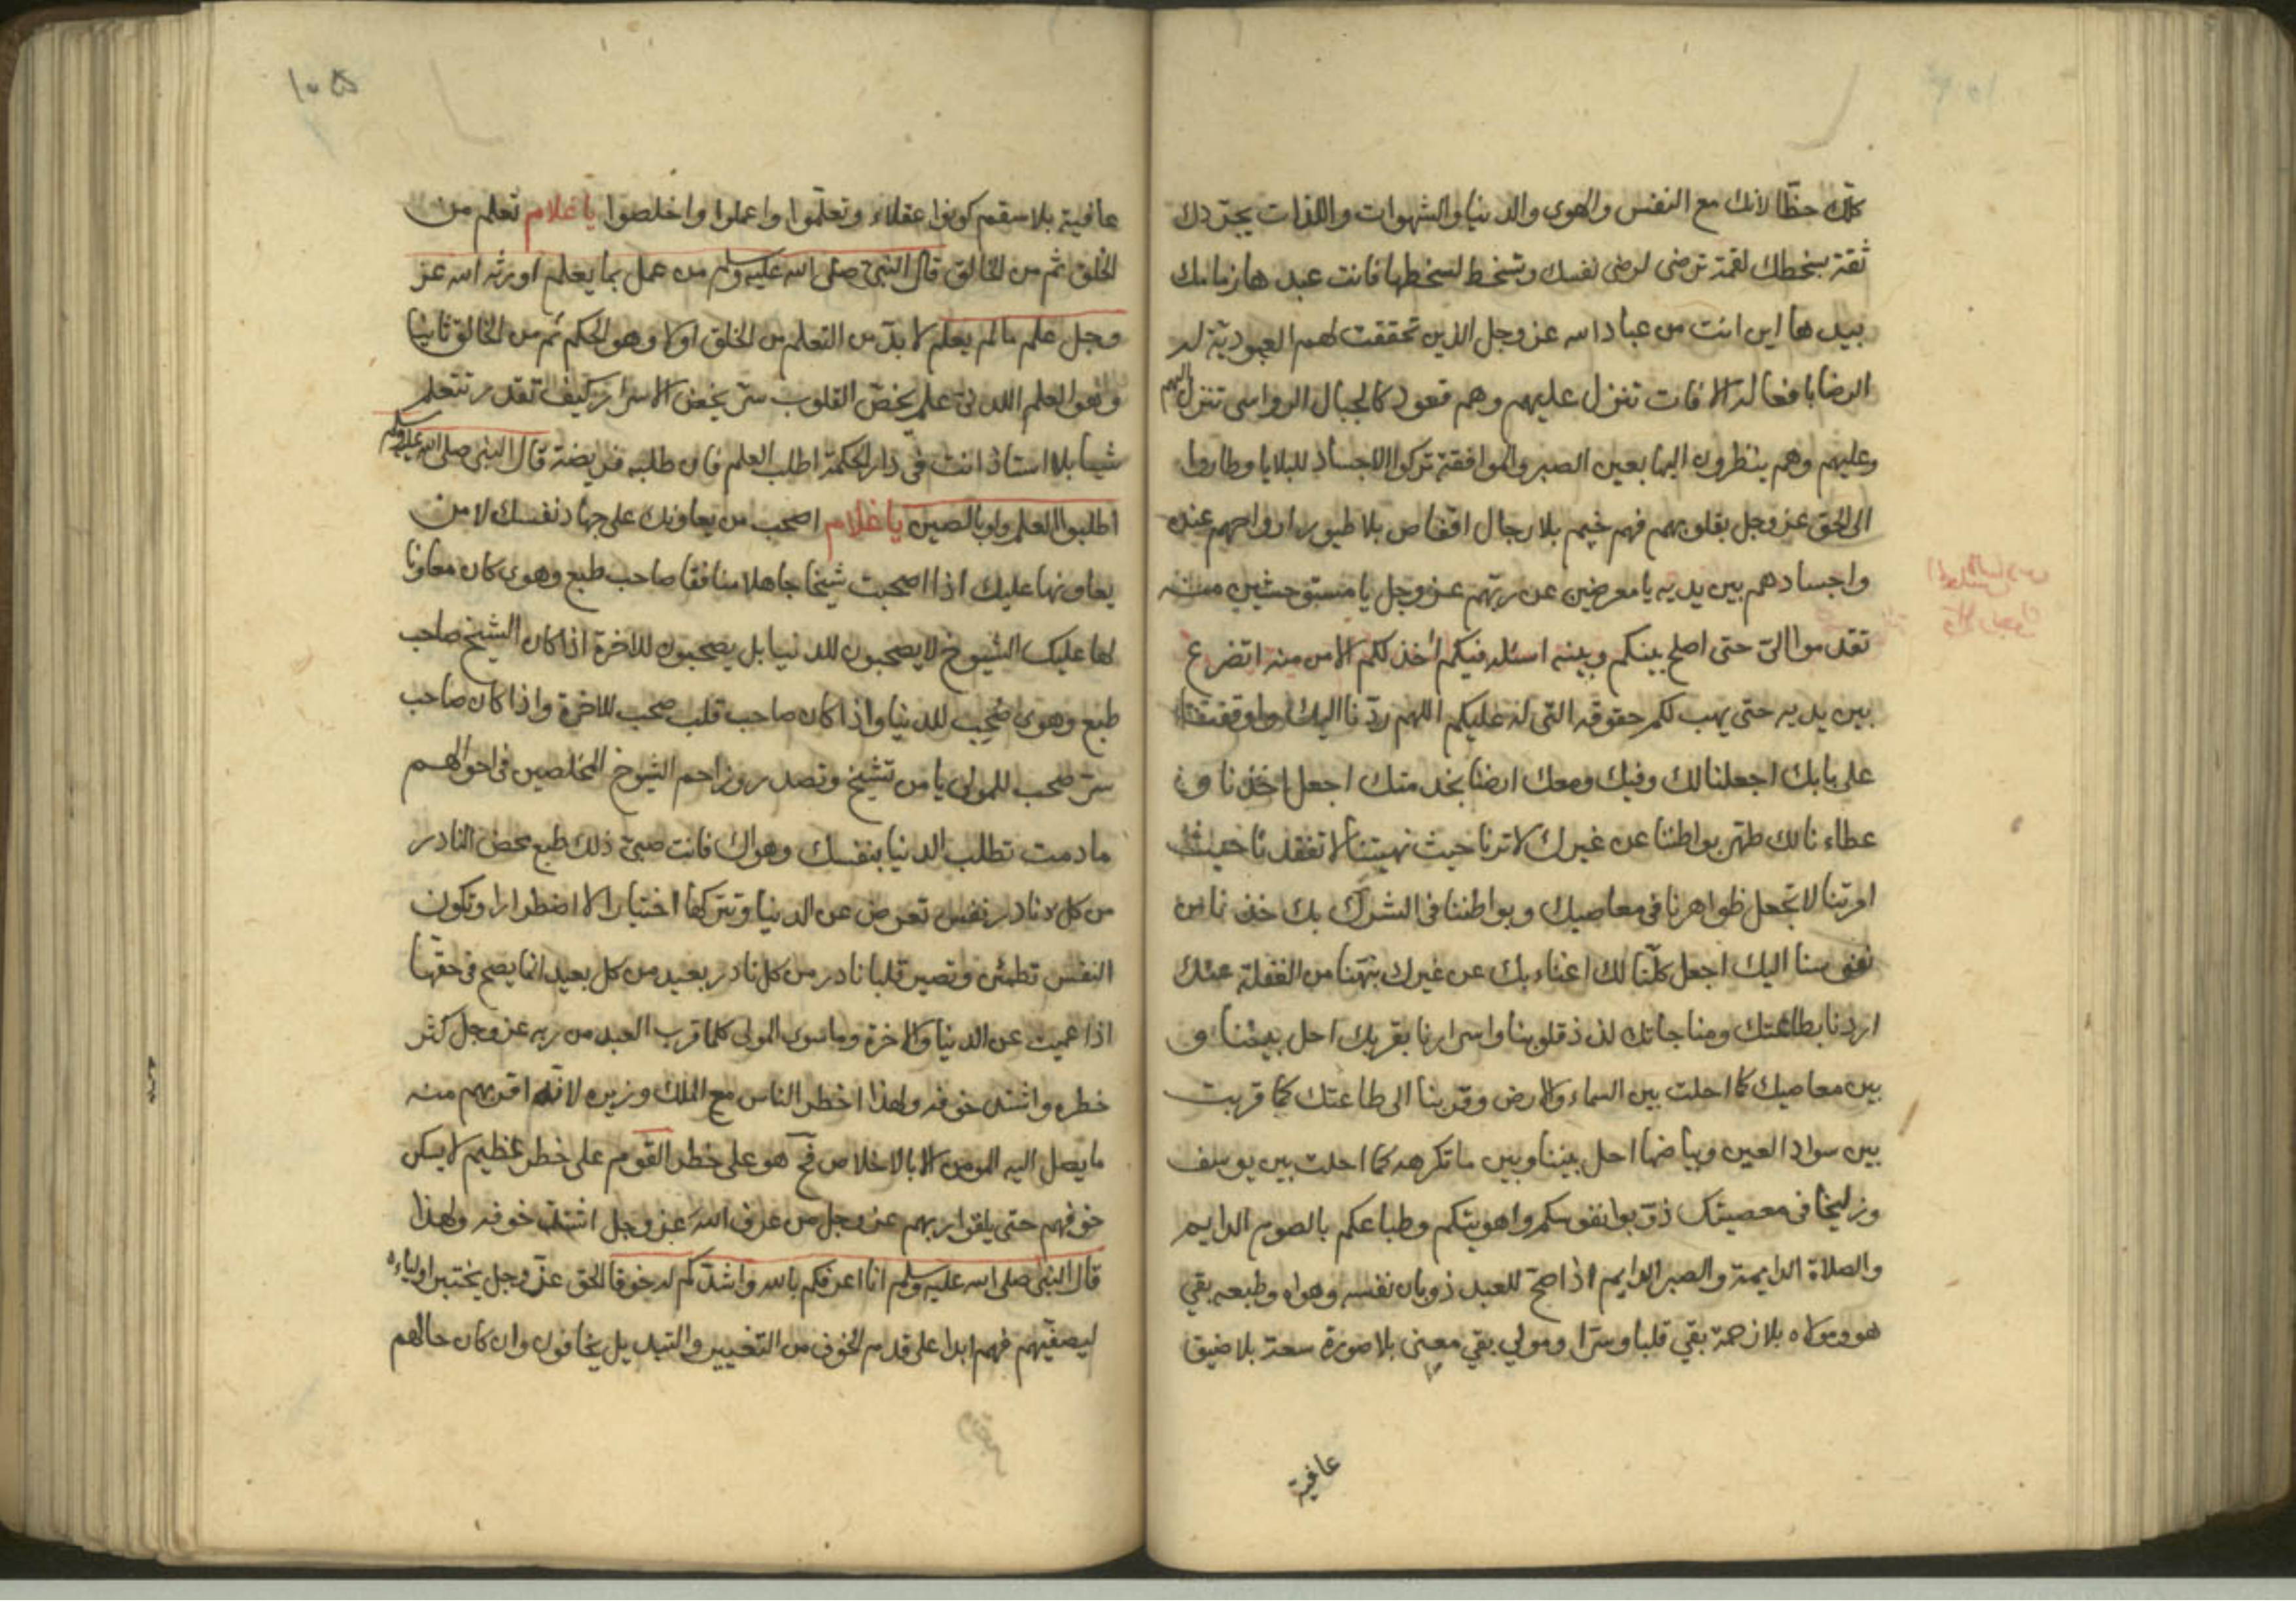 كلك حظا لانك مع النفس والهوى والدنيا والشهوات واللذات يجردك
ثقة بسخطك لقمة ترضى لرضى نفسك وتسخط لسخطها فانت عبدها زمامك
بيدها اين انت من عباد الله عز وجل الذين تحققت لهم العبودية له
الرضا بافعاله الافات تنزل عليهم وهم قعود كالجبال الرواسى تنزل اليهم
وعليهم وهم ينظرون اليها بعين الصبر والموافقة تركوا الاجساد للبلايا وطاروا
الى الحق عز وجل بقلوبهم فهم خيم بلا رجال اقفاص بلا طيور ارواحهم عنده
واجسادهم بين يديه يا معرضين عن ربهم عز وجل يا مستوحشين منه
تقدموا الىّ حتى اصلح بينكم وبينه اسئله فيكم أخذ لكم الامن منه اتضرع
بين يديه حتى يهب لكم حقوقه التى له عليكم اللهم ردّنا اليك واوقفنا
على بابك اجعلنا لك وفيك ومعك ارضنا بخدمتك اجعل اخذنا و
عطاءنا لك طهر بواطننا عن غيرك لا ترنا حيث نهيتنا لا تفقدنا حيث
امرتنا لا تجعل ظواهرنا فى معاصيك وبواطننا فى الشرك بك خذنا من
نفوسنا اليك اجعل كلّنا لك اغناء بك عن غيرك نبّهنا من الغفلة عنك
اردنا بطاعتك ومناجاتك لذذ قلوبنا واسرارنا بقربك احل بيننا و
بين معاصيك كما احلت بين السماء والارض وقربنا الى طاعتك كما قربت
بين سواد العين وبياضها احل بيننا وبين ما تكرهه كما احلت بين يوسف
وزليخا فى معصيتك ذوّبوا نفوسكم واهويتكم وطباعكم بالصوم الدايم
والصلاة الدايمة والصبر الدايم اذا صحّ للعبد ذوبان نفسه وهواه وطبعه بقي
هو ومولاه بلا زحمة بقي قلبا وسرّا ومولى بقي معنى بلا صورة سعة بلا ضيق
عافية
١٠٥
عافية بلا سقم كونوا عقلاء وتعلّموا واعملوا واخلصوا يا غلام تعلم من
الخلق ثم من الخالق قال النبىّ صلى الله عليه وسلم من عمل بما يعلم اورثه الله عز
وجل علم ما لم يعلم لا بدّ من التعلم من الخلق اولا وهو الحكم ثم من الخالق ثانيا
وهو العلم اللدنى علم يخصّ القلوب سرّ يخص الاسرار كيف تقدر تتعلم
شيئا بلا استاذ انت فى دار الحكمة اطلب العلم فان طلبه فريضة قال النبى صلى الله عليه وسلم
اطلبوا العلم ولو بالصين يا غلام اصحب من يعاونك على جهاد نفسك لا من
يعاونها عليك اذا اصحبت شيخا جاهلا منافقا صاحب طبع وهوى كان معاونا
لها عليك الشيوخ لا يصحبون للدنيا بل يصحبون للاخرة اذا كان الشيخ صاحب
طبع وهوى صحب للدنيا واذا كان صاحب قلب صحب للاخرة واذا كان صاحب
سرّ صحب للمولى يا من تشيخ وتصدر وزاحم الشيوخ المخلصين فى احوالهم
ما دمت تطلب الدنيا بنفسك وهواك فانت صبىّ ذلك طبع محض النادر
من كل نادر نفس تعرض عن الدنيا وتتركها اختيارا لا اضطرارا وتكون
النفس تطمئن وتصير قلبا نادر من كل نادر بعيد من كل بعيد انما يصح فى حقّها
اذا عميت عن الدنيا والاخرة وما سوى المولى كلما قرب العبد من ربه عز وجل كثر
خطره واشتد خوفه ولهذا اخطر الناس مع الملك وزيره لانه اقربهم منه
ما يصل اليه المومن الا بالاخلاص فح هو على خطر القوم على خطر عظيم لا يسكن
خوفهم حتى يلقوا ربهم عز وجل من عرف الله عز وجل اشتد خوفه ولهذا
قال النبى صلى الله عليه وسلم انا اعرفكم بالله واشدّكم له خوفا الحق عزّ وجل يختبر اولياءه
ليصفّيهم فهم ابدا على قدم الخوف من التغيير والتبديل يخافون وان كان حالهم